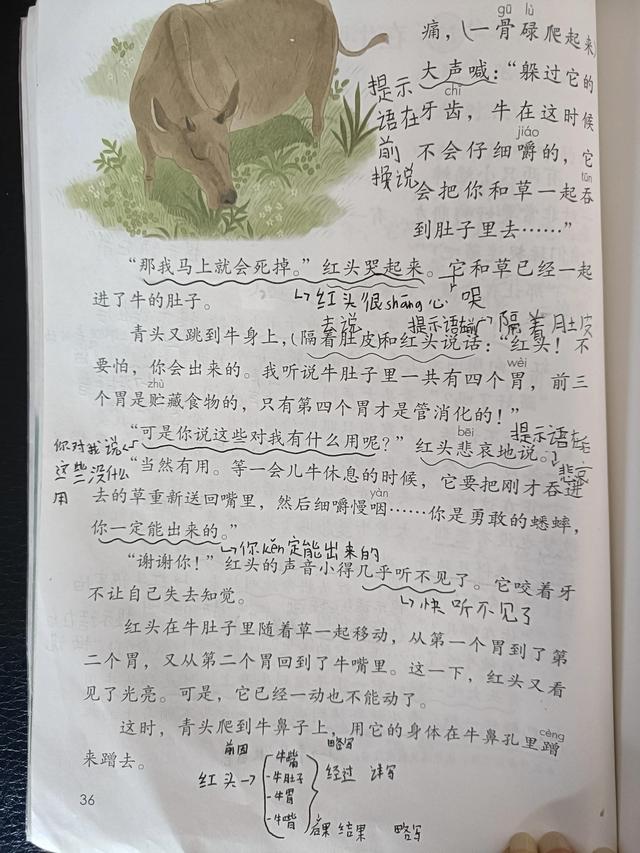 gū lù
痛，一骨碌爬起来，
大声喊："躲过它的
提示
chǐ
语在
牙齿，牛在这时候
前
jiáo
不会仔细嚼的，它
换说
tūn
会把你和草一起吞
到肚子里去……"
"那我马上就会死掉。"红头哭起来。它和草已经一起
进了牛的肚子。
↳红头很shāng心 哭
去说
提示语在前
隔着肚皮
青头又跳到牛身上，(隔着肚皮和红头说话："红头！不
要怕，你会出来的。我听说牛肚子里一共有四个胃，前三
wèi
zhù
个胃是贮藏食物的，只有第四个胃才是管消化的！"
bēi
"可是你说这些对我有什么用呢？"红头悲哀地说。
提示语在后
悲哀
你对我说
这些没什么
用
"当然有用。等一会儿牛休息的时候，它要把刚才吞进
yàn
去的草重新送回嘴里，然后细嚼慢咽……你是勇敢的蟋蟀，
你一定能出来的。"
↳你kěn定能出来的
"谢谢你！"红头的声音小得几乎听不见了。它咬着牙
不让自己失去知觉。
↳快听不见了
红头在牛肚子里随着草一起移动，从第一个胃到了第
二个胃，又从第二个胃回到了牛嘴里。这一下，红头又看
见了光亮。可是，它已经一动也不能动了。
cèng
这时，青头爬到牛鼻子上，用它的身体在牛鼻孔里蹭
来蹭去。
前因 略写
红头→ 牛嘴
-牛肚子 经过 详写
-牛胃
-牛嘴 后果 结果 略写
36